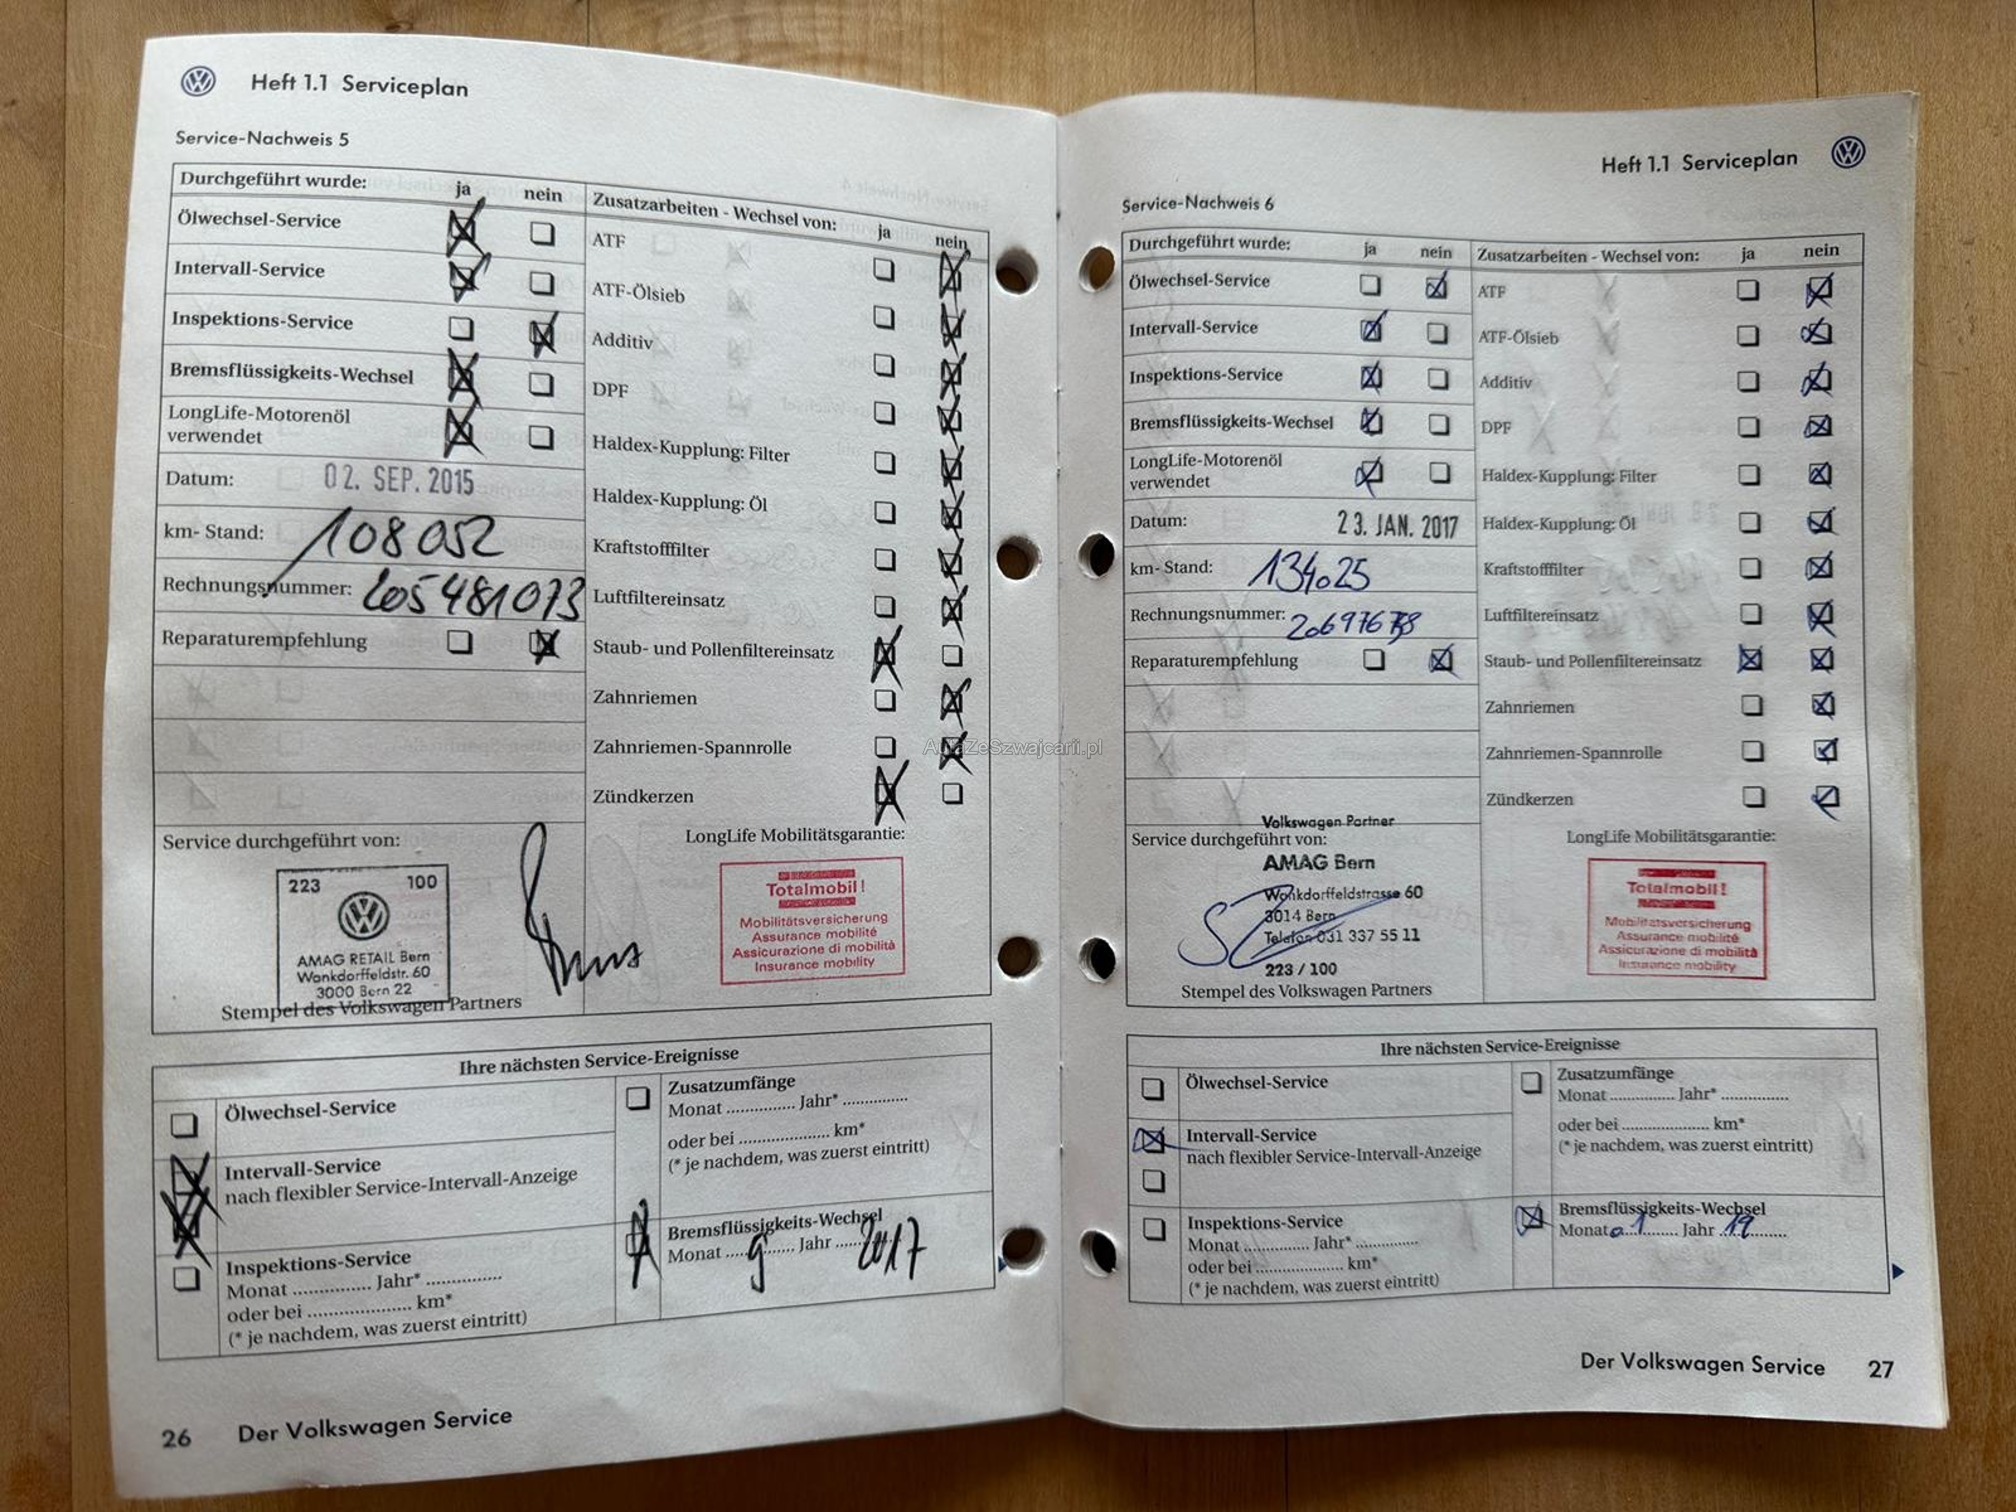 Heft 1.1 Serviceplan
Service-Nachweis 5
Durchgeführt wurde: ja nein
Ölwechsel-Service
Intervall-Service
Inspektions-Service
Bremsflüssigkeits-Wechsel
LongLife-Motorenöl
verwendet
Datum: 02. SEP. 2015
km- Stand: 108052
Rechnungsnummer: 205481073
Reparaturempfehlung
Zusatzarbeiten - Wechsel von: ja nein
ATF
ATF-Ölsieb
Additiv
DPF
Haldex-Kupplung: Filter
Haldex-Kupplung: Öl
Kraftstofffilter
Luftfiltereinsatz
Staub- und Pollenfiltereinsatz
Zahnriemen
Zahnriemen-Spannrolle
Zündkerzen
Service durchgeführt von:
223 100
AMAG RETAIL Bern
Wankdorffeldstr. 60
3000 Bern 22
Stempel des Volkswagen Partners
LongLife Mobilitätsgarantie:
Totalmobil!
Mobilitätsversicherung
Assurance mobilité
Assicurazione di mobilità
Insurance mobility
Ihre nächsten Service-Ereignisse
Ölwechsel-Service
Intervall-Service
nach flexibler Service-Intervall-Anzeige
Inspektions-Service
Monat ................ Jahr* ...............
oder bei ..................... km*
(* je nachdem, was zuerst eintritt)
Zusatzumfänge
Monat .............. Jahr* .............
oder bei .................... km*
(* je nachdem, was zuerst eintritt)
Bremsflüssigkeits-Wechsel
Monat .....9...... Jahr .....2017
26 Der Volkswagen Service
Heft 1.1 Serviceplan
Service-Nachweis 6
Durchgeführt wurde: ja nein
Ölwechsel-Service
Intervall-Service
Inspektions-Service
Bremsflüssigkeits-Wechsel
LongLife-Motorenöl
verwendet
Datum: 23. JAN. 2017
km- Stand: 134025
Rechnungsnummer:
Reparaturempfehlung
Zusatzarbeiten - Wechsel von: ja nein
ATF
ATF-Ölsieb
Additiv
DPF
Haldex-Kupplung: Filter
Haldex-Kupplung: Öl
Kraftstofffilter
Luftfiltereinsatz
Staub- und Pollenfiltereinsatz
Zahnriemen
Zahnriemen-Spannrolle
Zündkerzen
Volkswagen Partner
Service durchgeführt von:
AMAG Bern
Wankdorffeldstrasse 60
3014 Bern
Telefon 031 337 55 11
223 / 100
Stempel des Volkswagen Partners
LongLife Mobilitätsgarantie:
Totalmobil!
Mobilitätsversicherung
Assurance mobilité
Assicurazione di mobilità
Insurance mobility
Ihre nächsten Service-Ereignisse
Ölwechsel-Service
Intervall-Service
nach flexibler Service-Intervall-Anzeige
Inspektions-Service
Monat .............. Jahr* .............
oder bei .................... km*
(* je nachdem, was zuerst eintritt)
Zusatzumfänge
Monat .............. Jahr* .............
oder bei .................... km*
(* je nachdem, was zuerst eintritt)
Bremsflüssigkeits-Wechsel
Monat 01........ Jahr .19.........
Der Volkswagen Service 27
AutaZeSzwajcarii.pl